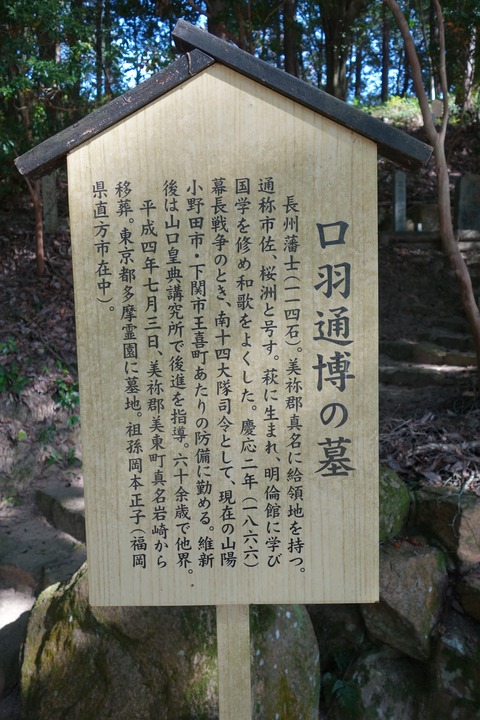 口羽通博の墓
長州藩士（一一四石）。美祢郡真名に給領地を持つ。
通称市佐、桜洲と号す。萩に生まれ、明倫館に学び
国学を修め和歌をよくした。慶応二年（一八六六）
幕長戦争のとき、南十四大隊司令として、現在の山陽
小野田市・下関市王喜町あたりの防備に勤める。維新
後は山口皇典講究所で後進を指導。六十余歳で他界。
平成四年七月三日、美祢郡美東町真名岩崎から
移葬。東京都多摩霊園に墓地。祖孫岡本正子（福岡
県直方市在中）。